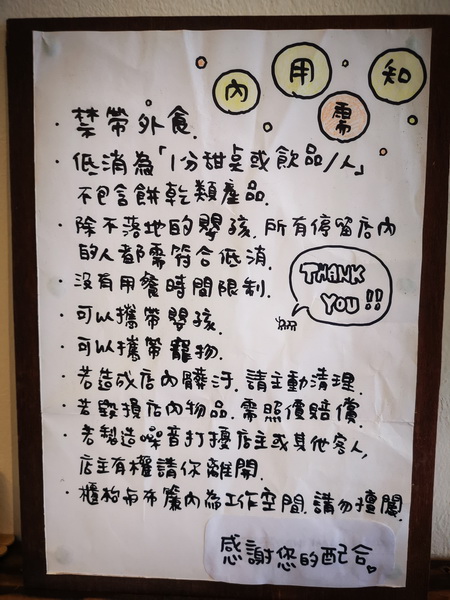 內用需知
· 禁帶外食.
· 低消為「1份甜点或飲品/人」
不包含餅乾類產品.
· 除不落地的嬰孩, 所有停留店內
的人都需符合低消.
· 沒有用餐時間限制.
· 可以攜帶嬰孩.
· 可以攜帶寵物.
THANK
YOU!!
· 若造成店內髒汙, 請主動清理.
· 若毀損店內物品, 需照價賠償.
· 若製造噪音打擾店主或其他客人,
店主有權請你離開.
· 櫃枱与布簾內為工作空間, 請勿擅闖.
感謝您的配合